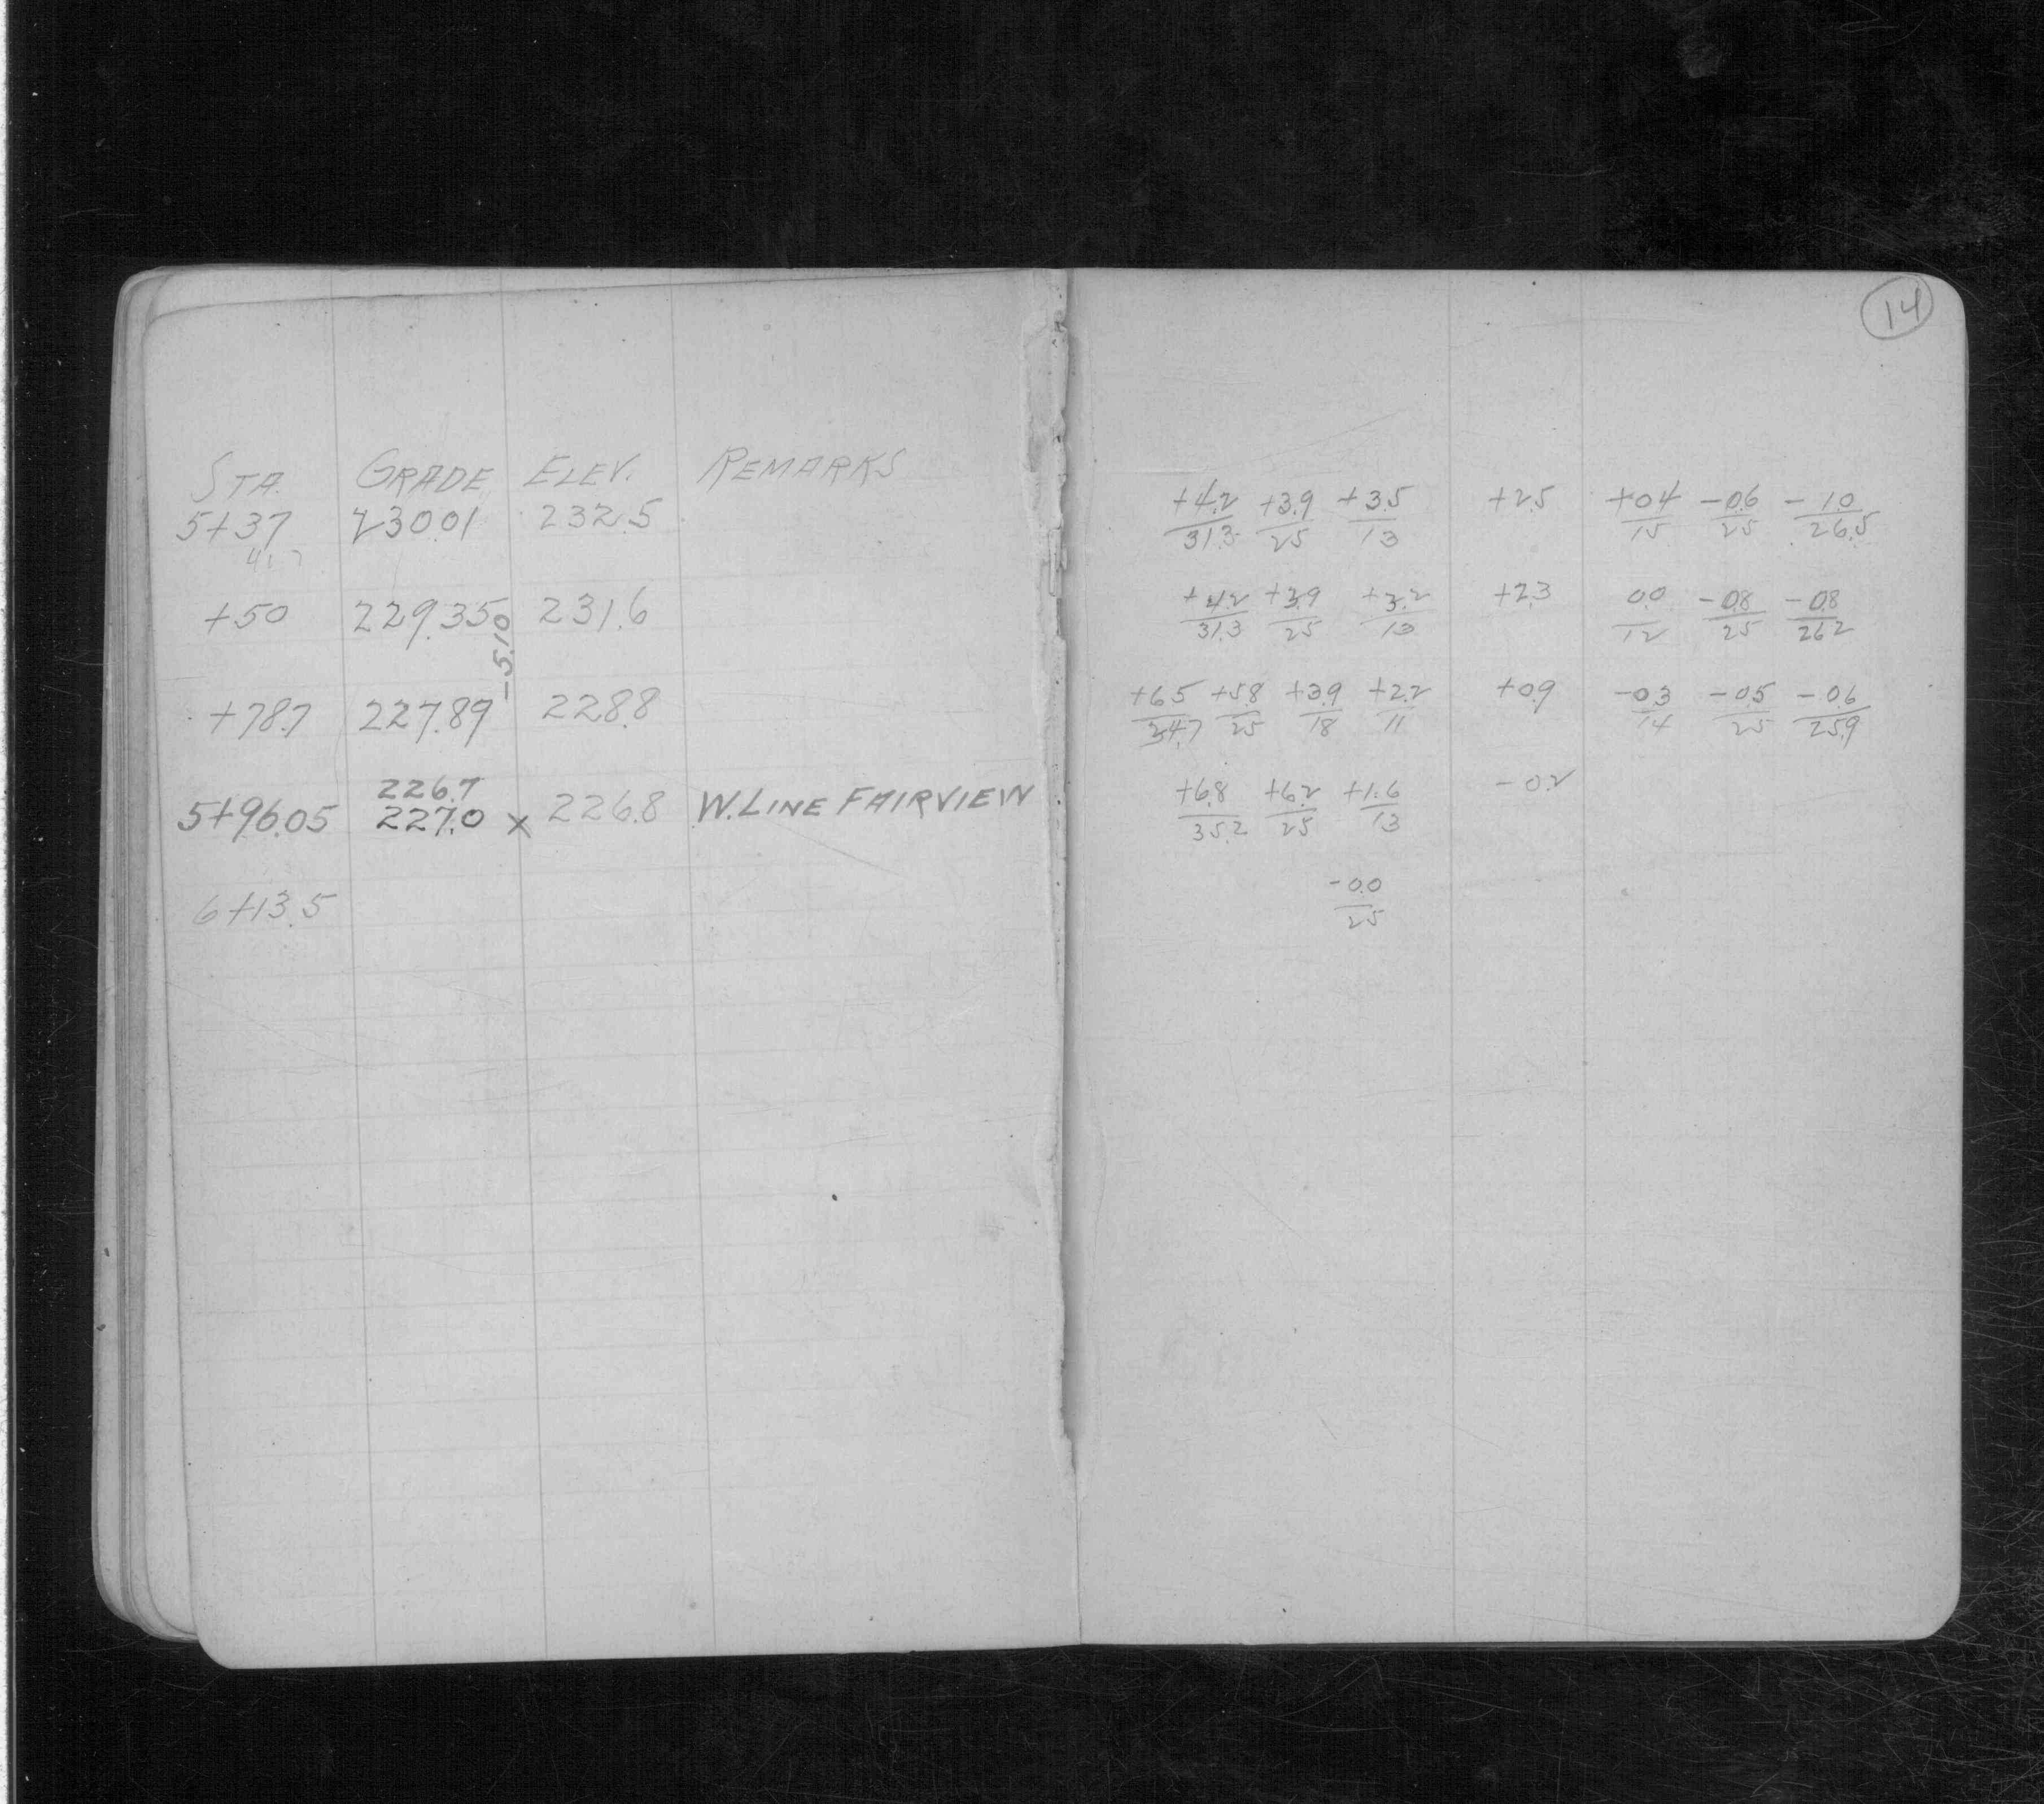 14
STA. GRADE ELEV. REMARKS
5+37 230.01 232.5
+50 229.35 231.6
-5.10
+78.7 227.89 228.8
226.7
5+96.05 227.0 x 226.8 W. LINE FAIRVIEW
6+13.5
+4.2 +3.9 +3.5 +2.5 +0.4 -0.6 -1.0
31.3 25 13 15 25 26.5
+4.2 +3.9 +3.2 +2.3 0.0 -0.8 -0.8
31.3 25 13 12 25 26.2
+6.5 +5.8 +3.9 +2.2 +0.9 -0.3 -0.5 -0.6
34.7 25 18 11 14 25 25.9
+6.8 +6.2 +1.6 -0.2
35.2 25 13
-0.0
25